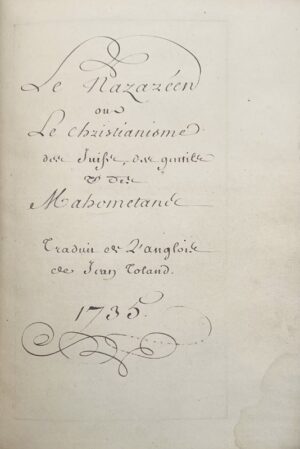 Le Nazaréen
ou
Le Christianisme
des Juifs, des gentils
& des
Mahometans
Traduit de L'anglois
de Jean Toland.
1735.